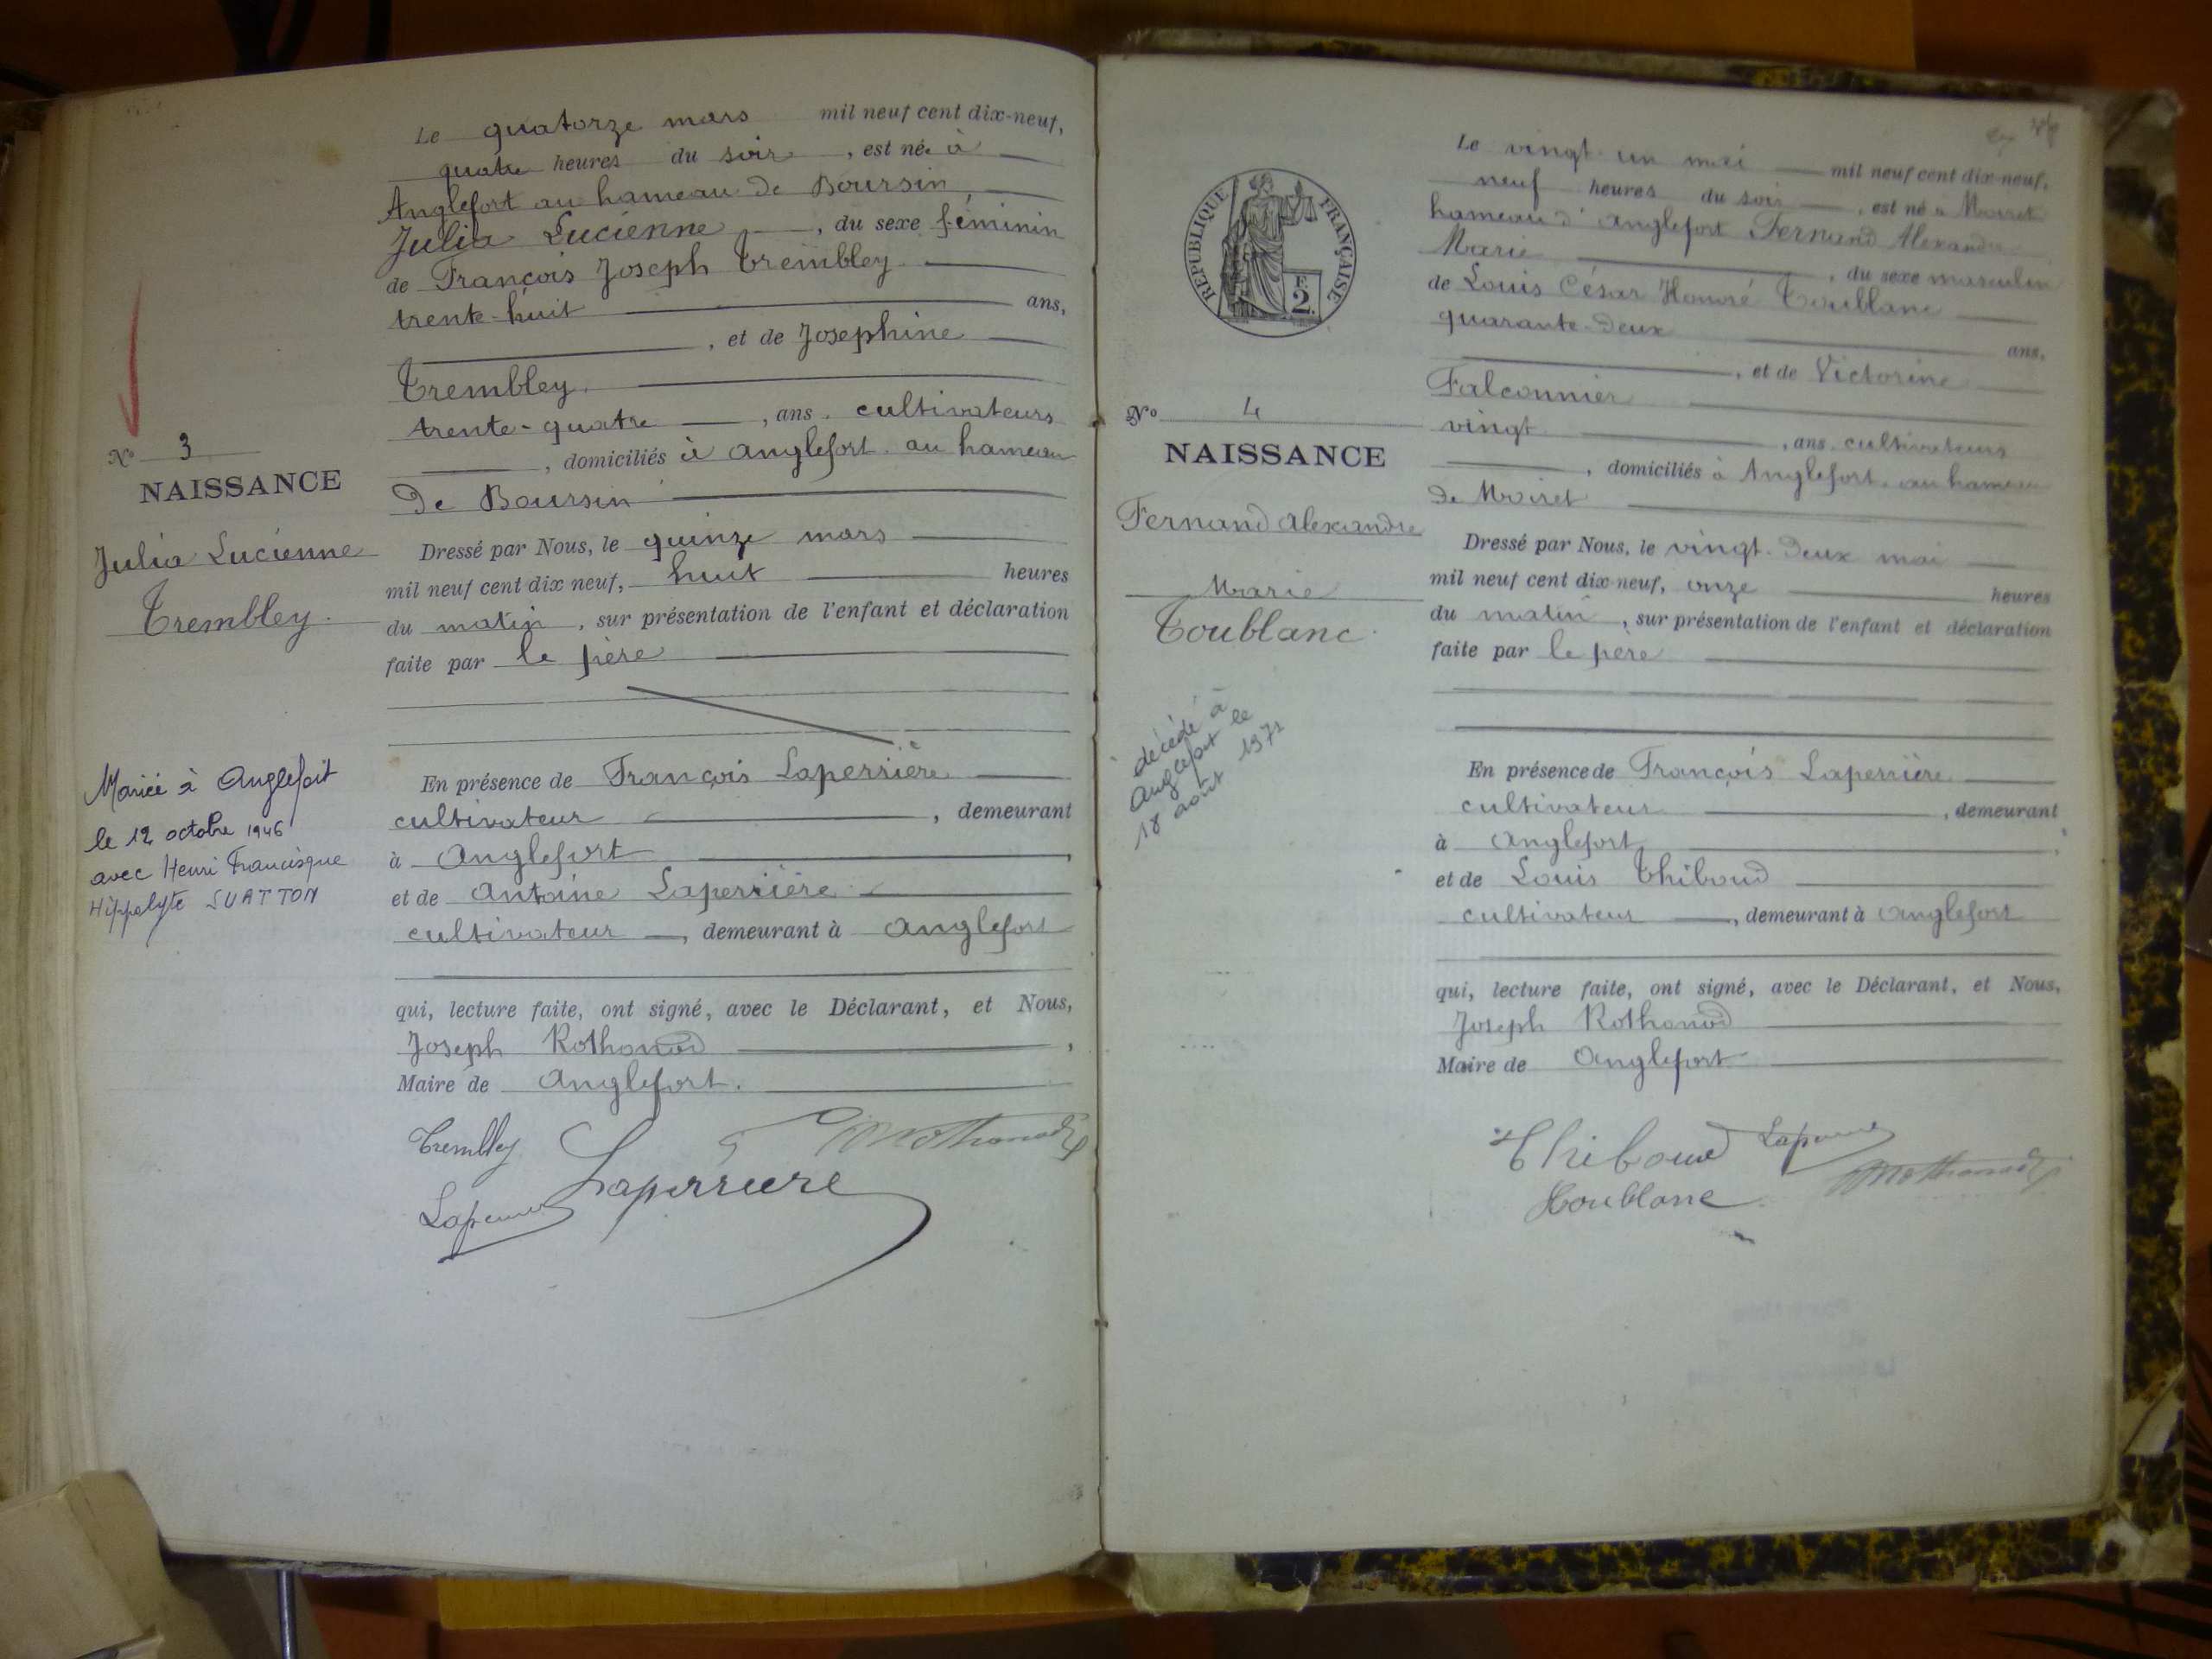 Le quatorze mars mil neuf cent dix-neuf,
quatre heures du soir, est née à
Anglefort au hameau de Boursin,
Julia Lucienne, du sexe féminin
de François Joseph Trembley
trente-huit ans,
, et de Josephine
Trembley.
trente-quatre, ans. cultivateurs
, domiciliés à Anglefort. au hameau
de Boursin
N° 3
NAISSANCE
Julia Lucienne
Trembley.
Dressé par Nous, le quinze mars
mil neuf cent dix neuf, huit heures
du matin, sur présentation de l'enfant et déclaration
faite par le père
Mariée à Anglefort
le 12 octobre 1946
avec Henri Francisque
Hippolyte SUATTON
En présence de François Laperrière
cultivateur, demeurant
à Anglefort,
et de Antoine Laperrière
cultivateur, demeurant à Anglefort
qui, lecture faite, ont signé, avec le Déclarant, et Nous,
Joseph Rothonod,
Maire de Anglefort.
Trembley
Laperriere
RÉPUBLIQUE FRANÇAISE
F.
2.
Le vingt-un mai mil neuf cent dix-neuf,
neuf heures du soir, est né à Moiret
hameau d'Anglefort Fernand Alexandre
Marie, du sexe masculin
de Louis César Honoré Toublanc
quarante-deux ans,
, et de Victorine
Falconnier
vingt, ans. cultivateurs
, domiciliés à Anglefort. au hameau
de Moiret
N° 4
NAISSANCE
Fernand Alexandre
Marie
Toublanc.
Dressé par Nous, le vingt-deux mai
mil neuf cent dix-neuf, onze heures
du matin, sur présentation de l'enfant et déclaration
faite par le père
décédé à
Anglefort le
18 août 1971
En présence de François Laperrière
cultivateur, demeurant
à Anglefort,
et de Louis Thiboud
cultivateur, demeurant à Anglefort
qui, lecture faite, ont signé, avec le Déclarant, et Nous,
Joseph Rothonod
Maire de Anglefort
Thiboud
Toublanc